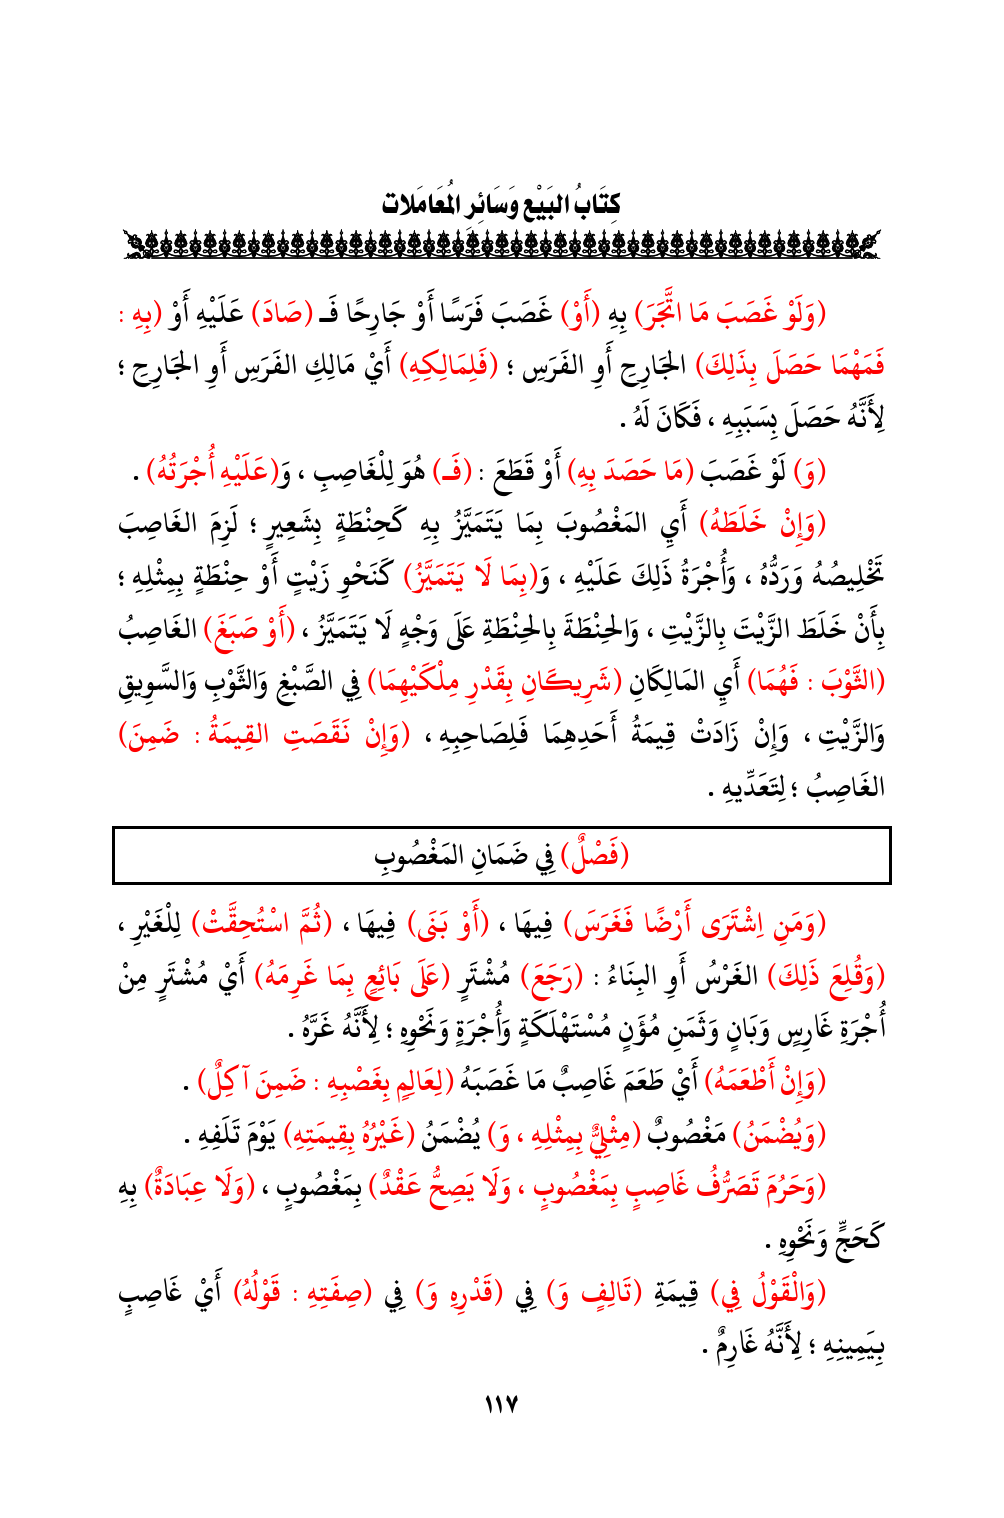 كِتَابُ البَيْعِ وَسَائِرِ المُعَامَلات
(وَلَوْ غَصَبَ مَا اتَّجَرَ) بِهِ (أَوْ) غَصَبَ فَرَسًا أَوْ جَارِحًا فَـ (صَادَ) عَلَيْهِ أَوْ (بِهِ :
فَمَهْمَا حَصَلَ بِذَلِكَ) الجَارِحِ أَوِ الفَرَسِ ؛ (فَلِمَالِكِهِ) أَيْ مَالِكِ الفَرَسِ أَوِ الجَارِحِ ؛
لِأَنَّهُ حَصَلَ بِسَبَبِهِ ، فَكَانَ لَهُ .
(وَ) لَوْ غَصَبَ (مَا حَصَدَ بِهِ) أَوْ قَطَعَ : (فَـ) هُوَ لِلْغَاصِبِ ، وَ(عَلَيْهِ أُجْرَتُهُ) .
(وَإِنْ خَلَطَهُ) أَيِ المَغْصُوبَ بِمَا يَتَمَيَّزُ بِهِ كَحِنْطَةٍ بِشَعِيرٍ ؛ لَزِمَ الغَاصِبَ
تَخْلِيصُهُ وَرَدُّهُ ، وَأُجْرَةُ ذَلِكَ عَلَيْهِ ، وَ(بِمَا لَا يَتَمَيَّزُ) كَنَحْوِ زَيْتٍ أَوْ حِنْطَةٍ بِمِثْلِهِ ؛
بِأَنْ خَلَطَ الزَّيْتَ بِالزَّيْتِ ، وَالحِنْطَةَ بِالحِنْطَةِ عَلَى وَجْهٍ لَا يَتَمَيَّزُ ، (أَوْ صَبَغَ) الغَاصِبُ
(الثَّوْبَ : فَهُمَا) أَيِ المَالِكَانِ (شَرِيكَانِ بِقَدْرِ مِلْكَيْهِمَا) فِي الصَّبْغِ وَالثَّوْبِ وَالسَّوِيقِ
وَالزَّيْتِ ، وَإِنْ زَادَتْ قِيمَةُ أَحَدِهِمَا فَلِصَاحِبِهِ ، (وَإِنْ نَقَصَتِ القِيمَةُ : ضَمِنَ)
الغَاصِبُ ؛ لِتَعَدِّيهِ .
(فَصْلٌ) فِي ضَمَانِ المَغْصُوبِ
(وَمَنِ اِشْتَرَى أَرْضًا فَغَرَسَ) فِيهَا ، (أَوْ بَنَى) فِيهَا ، (ثُمَّ اسْتُحِقَّتْ) لِلْغَيْرِ ،
(وَقُلِعَ ذَلِكَ) الغَرْسُ أَوِ البِنَاءُ : (رَجَعَ) مُشْتَرٍ (عَلَى بَائِعٍ بِمَا غَرِمَهُ) أَيْ مُشْتَرٍ مِنْ
أُجْرَةِ غَارِسٍ وَبَانٍ وَثَمَنِ مُؤَنٍ مُسْتَهْلَكَةٍ وَأُجْرَةٍ وَنَحْوِهِ ؛ لِأَنَّهُ غَرَّهُ .
(وَإِنْ أَطْعَمَهُ) أَيْ طَعَمَ غَاصِبٌ مَا غَصَبَهُ (لِعَالِمٍ بِغَصْبِهِ : ضَمِنَ آكِلٌ) .
(وَيُضْمَنُ) مَغْصُوبٌ (مِثْلِيٌّ بِمِثْلِهِ ، وَ) يُضْمَنُ (غَيْرُهُ بِقِيمَتِهِ) يَوْمَ تَلَفِهِ .
(وَحَرُمَ تَصَرُّفُ غَاصِبٍ بِمَغْصُوبٍ ، وَلَا يَصِحُّ عَقْدٌ) بِمَغْصُوبٍ ، (وَلَا عِبَادَةٌ) بِهِ
كَحَجٍّ وَنَحْوِهِ .
(وَالْقَوْلُ فِي) قِيمَةِ (تَالِفٍ وَ) فِي (قَدْرِهِ وَ) فِي (صِفَتِهِ : قَوْلُهُ) أَيْ غَاصِبٍ
بِيَمِينِهِ ؛ لِأَنَّهُ غَارِمٌ .
١١٧